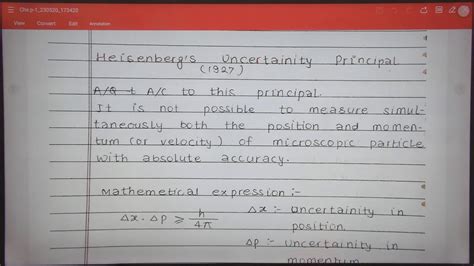 Che p-1_230520_173420
View Convert Edit Annotation
Heisenberg's Uncertainity Principal
(1927)
A/C to this principal.
It is not possible to measure simul-
taneously both the position and momen-
tum (or velocity) of microscopic particle
with absolute accuracy.
Mathemetical expression :-
Δx · Δp ⩾ h/4π
Δx :- Uncertainity in
position.
Δp :- Uncertainity in
momentum